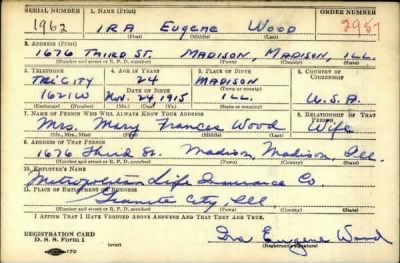 SERIAL NUMBER 1. NAME (Print) ORDER NUMBER
1962 IRA EUGENE WOOD 2957
(First) (Middle) (Last)
2. ADDRESS (Print)
1676 THIRD ST. MADISON, MADISON, ILL.
(Number and street or R. F. D. number) (Town) (County) (State)
3. TELEPHONE 4. AGE IN YEARS 5. PLACE OF BIRTH 6. COUNTRY OF CITIZENSHIP
TRI. CITY 24 MADISON
DATE OF BIRTH (Town or county)
1621W NOV. 24 1915 ILL. U.S.A.
(Exchange) (Number) (Mo.) (Day) (Yr.) (State or country)
7. NAME OF PERSON WHO WILL ALWAYS KNOW YOUR ADDRESS 8. RELATIONSHIP OF THAT PERSON
Mrs. Mary Frances Wood Wife
(Mr., Mrs., Miss) (First) (Middle) (Last)
9. ADDRESS OF THAT PERSON
1676 Third St. Madison, Madison, Ill.
(Number and street or R. F. D. number) (Town) (County) (State)
10. EMPLOYER'S NAME
Metropolitan Life Insurance Co.
11. PLACE OF EMPLOYMENT OR BUSINESS
Granite City, Ill.
(Number and street or R. F. D. number) (Town) (County) (State)
I AFFIRM THAT I HAVE VERIFIED ABOVE ANSWERS AND THAT THEY ARE TRUE.
REGISTRATION CARD
D. S. S. Form 1 (over) Ira Eugene Wood
(Registrant's signature)